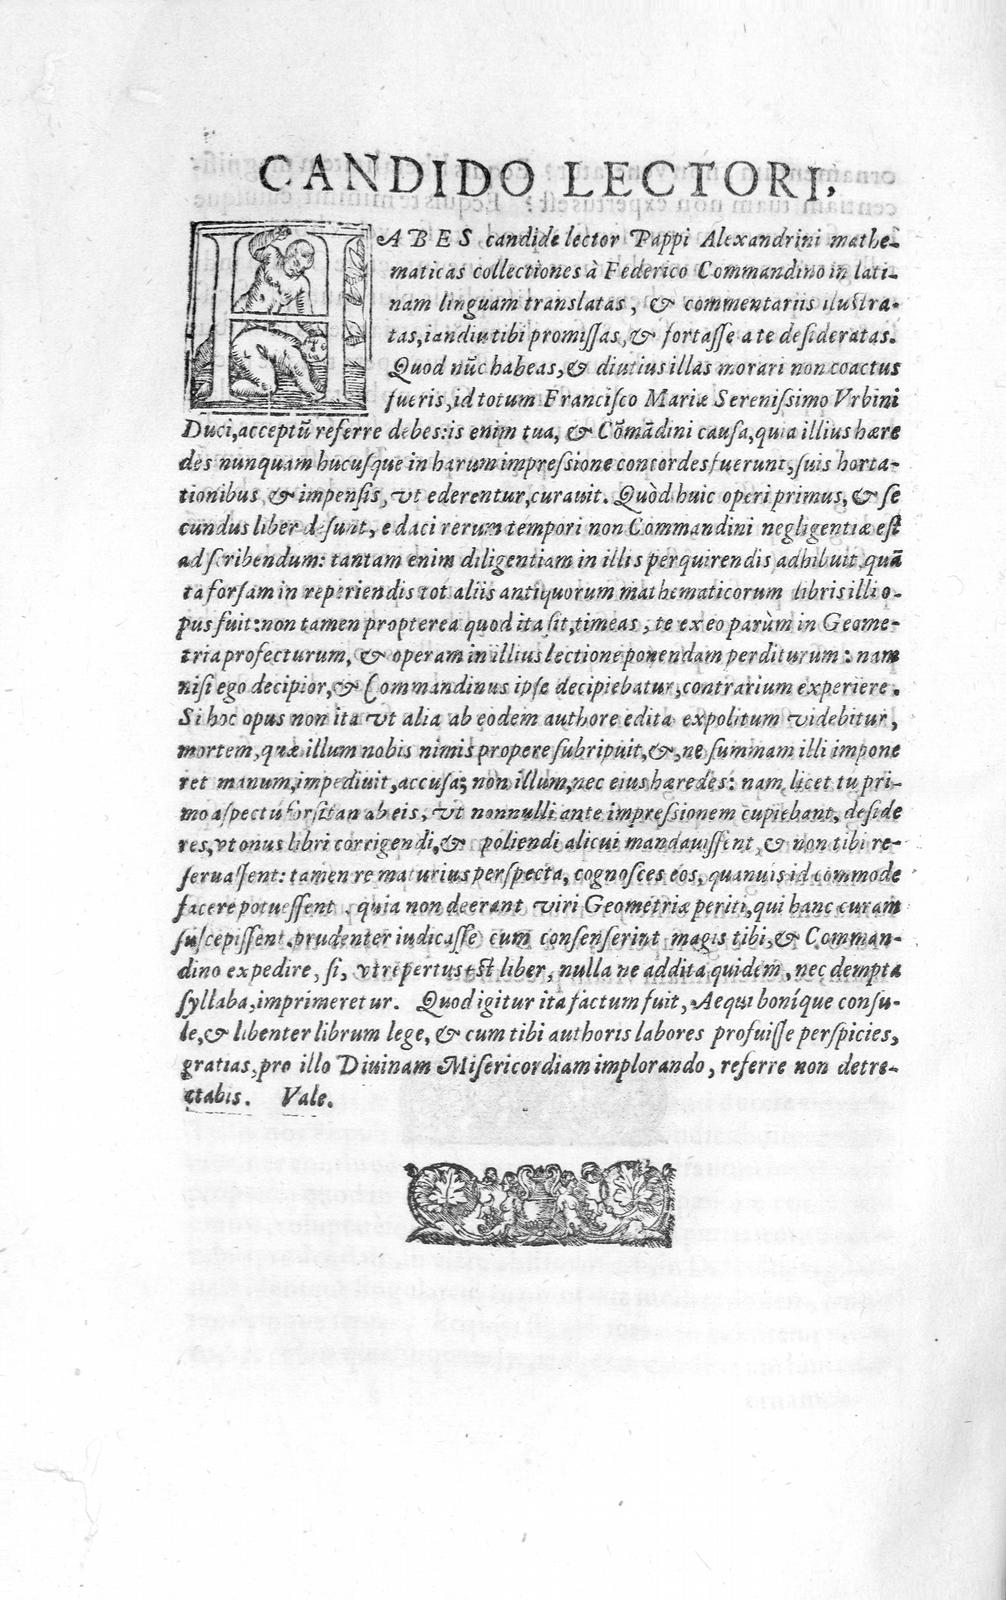 CANDIDO LECTORI,
HABES candide lector Pappi Alexandrini mathe-
maticas collectiones à Federico Commandino in lati-
nam linguam translatas, & commentariis ilustra-
tas, iandiu tibi promissas, & fortasse a te desideratas.
Quod nũc habeas, & diutius illas morari non coactus
fueris, id totum Francisco Mariæ Serenissimo Vrbini
Duci, acceptũ referre debes: is enim tua, & Cõmãdini causa, quia illius hære
des nunquam hucusque in harum impressione concordes fuerunt, suis horta-
tionibus, & impensis, vt ederentur, curauit. Quòd huic operi primus, & se
cundus liber desunt, edaci rerum tempori non Commandini negligentiæ est
adscribendum: tantam enim diligentiam in illis perquirendis adhibuit, quã
ta forsam in reperiendis tot aliis antiquorum mathematicorum libris illi o-
pus fuit: non tamen propterea quod ita sit, timeas, te ex eo parùm in Geome-
tria profecturum, & operam in illius lectione ponendam perditurum: nam
nisi ego decipior, & Commandinus ipse decipiebatur, contrarium experiere.
Si hoc opus non ita vt alia ab eodem authore edita expolitum videbitur,
mortem, quæ illum nobis nimis propere subripuit, &, ne summam illi impone
ret manum, impediuit, accusa; non illum, nec eius hæredes: nam licet tu pri-
mo aspectu forsitan ab eis, vt nonnulli ante impressionem cupiebant, deside
res, vt onus libri corrigendi, & poliendi alicui mandauissent, & non tibi re-
seruassent: tamen re maturius perspecta, cognosces eos, quanuis id commode
facere potuessent, quia non deerant viri Geometriæ periti, qui hanc curam
suscepissent, prudenter iudicasse cum consenserint magis tibi, & Comman-
dino expedire, si, vt repertus est liber, nulla ne addita quidem, nec dempta
syllaba, imprimeretur. Quod igitur ita factum fuit, Aequi boníque consu-
le, & libenter librum lege, & cum tibi authoris labores profuisse perspicies,
gratias, pro illo Diuinam Misericordiam implorando, referre non detre-
ctabis. Vale.